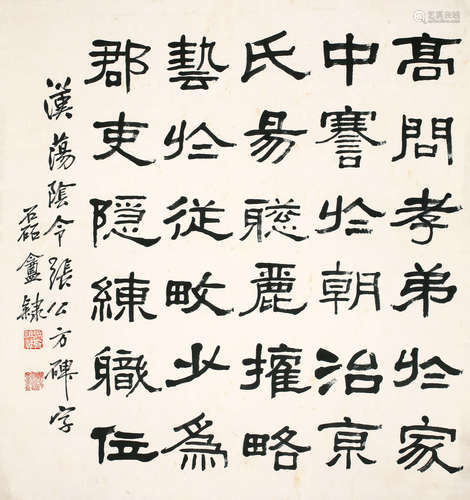 高問孝弟於家
中謇於朝治京
氏易聡麗攡略
藝於從畋少為
郡吏隠練職位
漢蕩陰令張公方碑字
磊盦隸